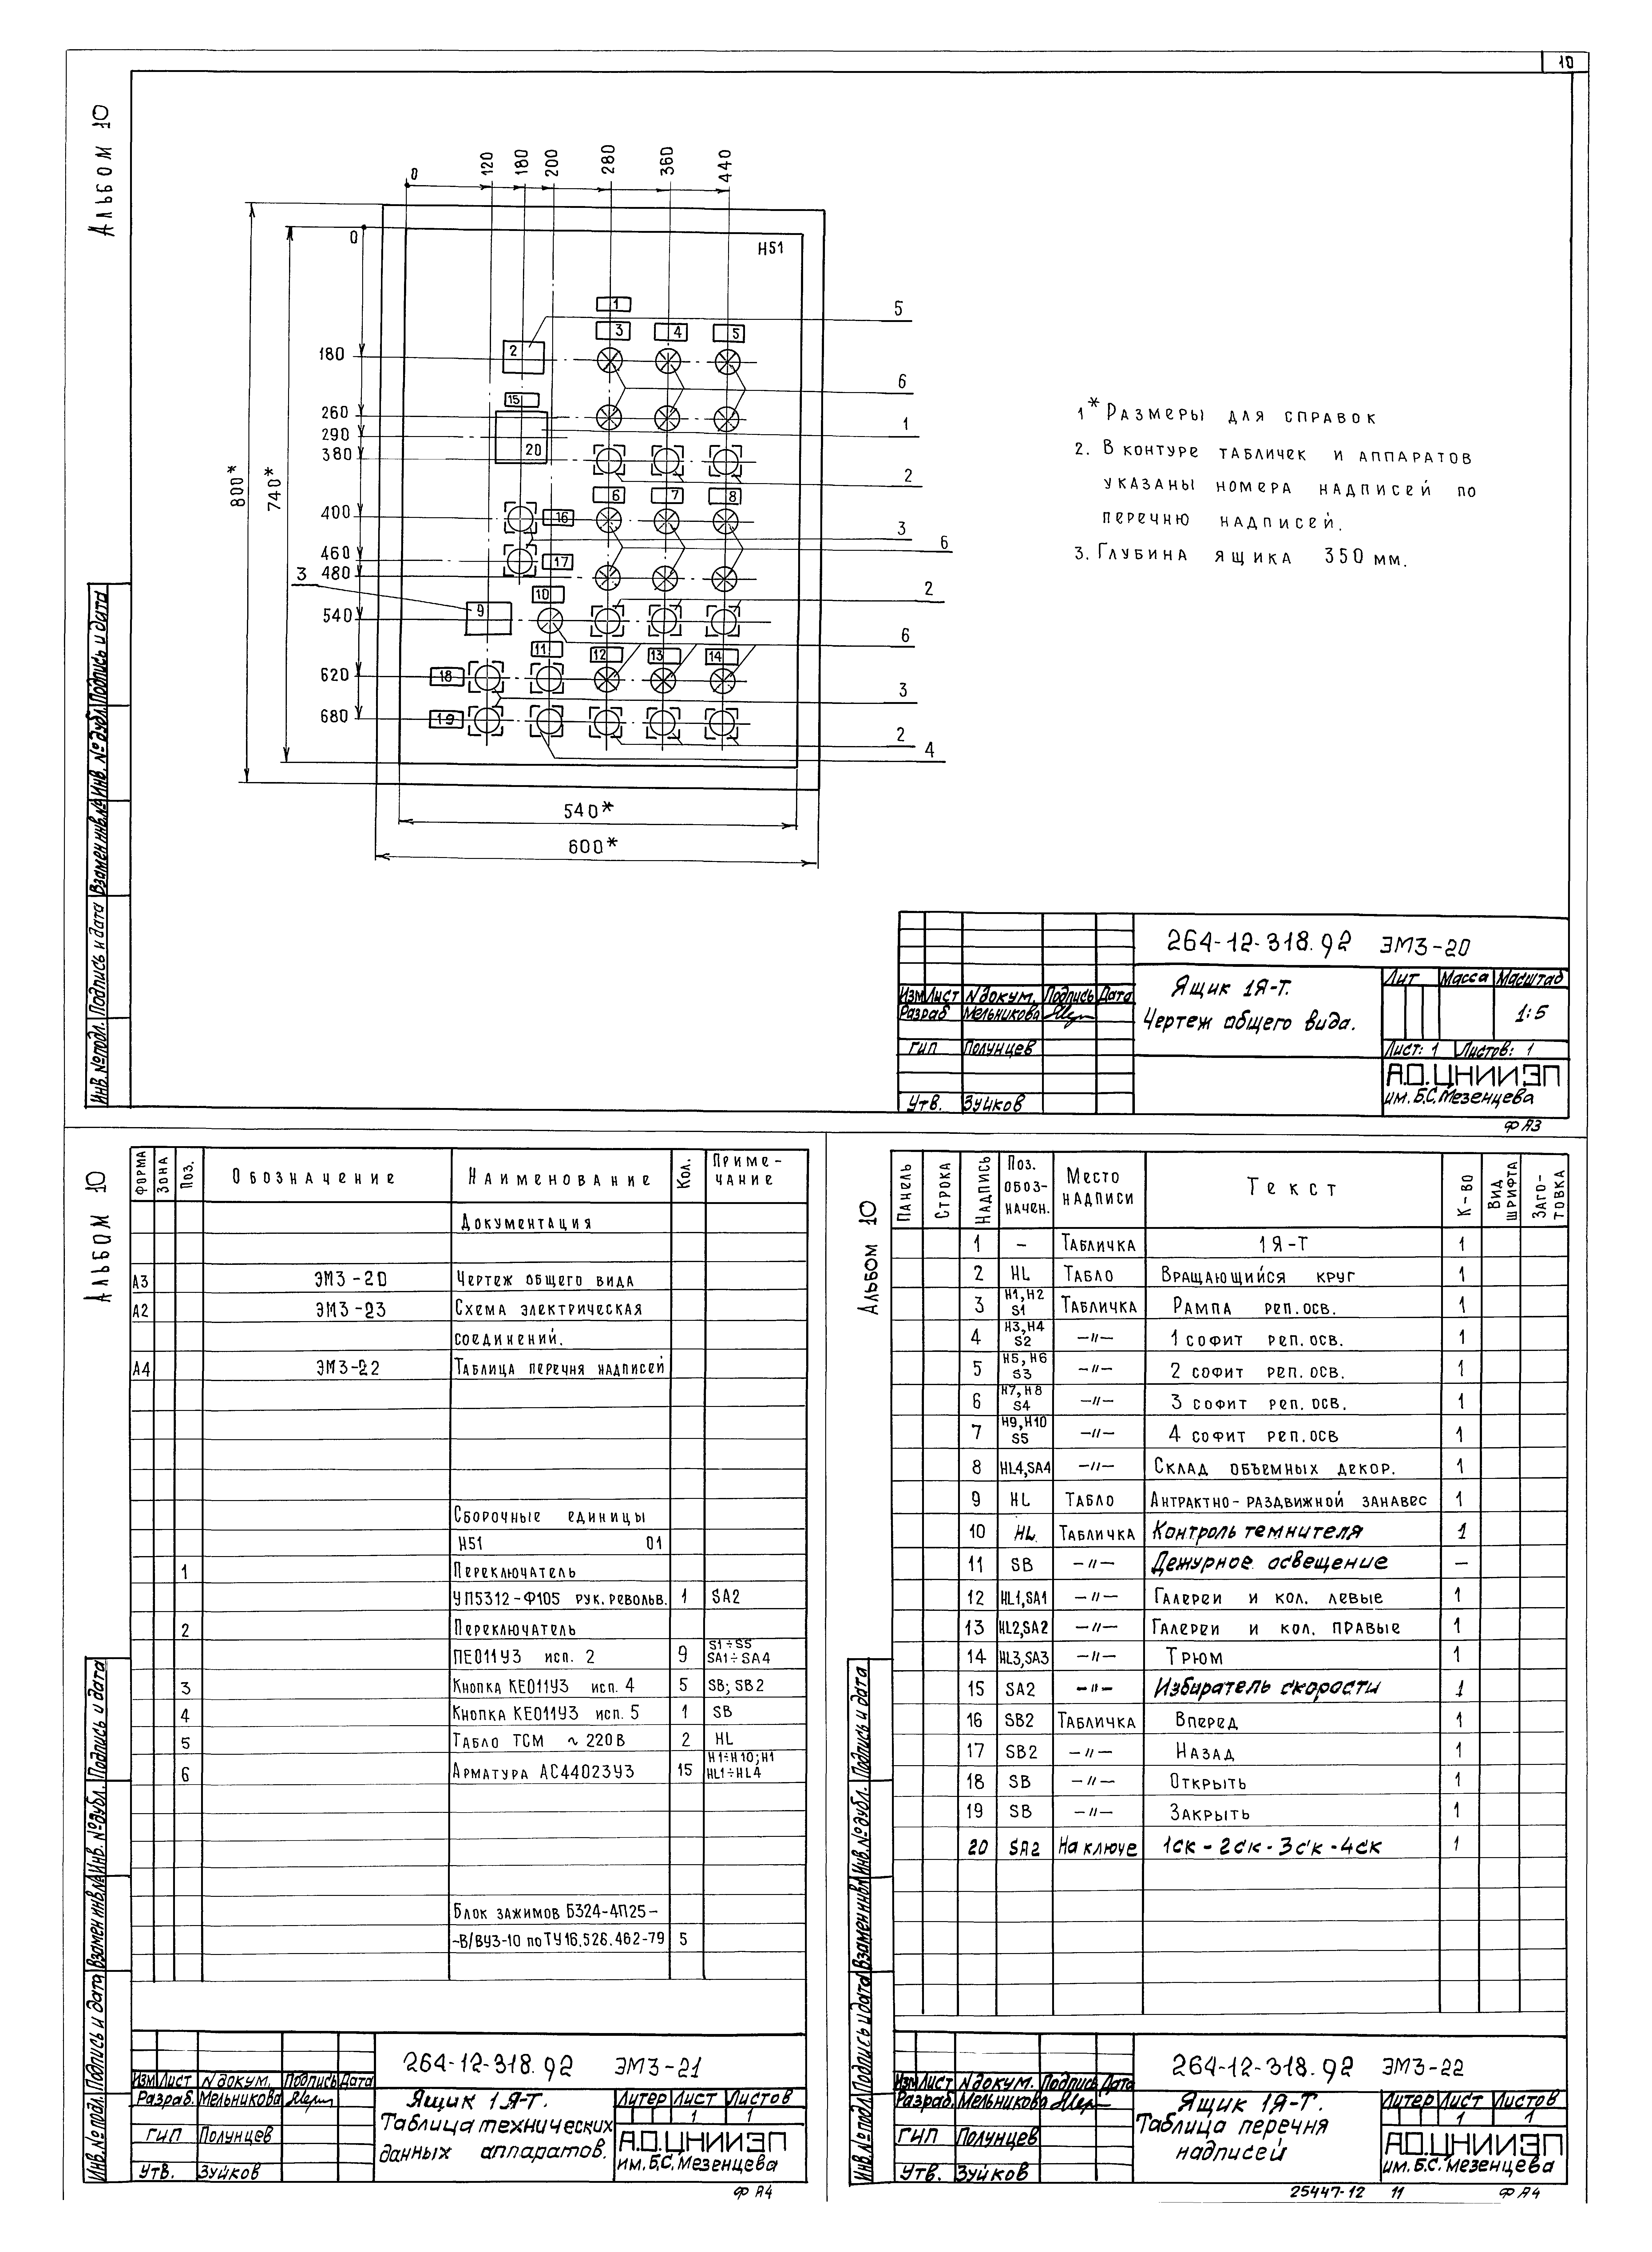 10
Альбом 10
0
120
180
200
280
360
440
0
180
260
290
380
400
460
480
540
620
680
800*
740*
540*
600*
Н51
1
3
4
5
2
15
20
6
7
8
16
17
10
9
11
12
13
14
18
19
5
6
1
2
3
6
3
2
6
3
2
4
1* Размеры для справок
2. В контуре табличек и аппаратов
указаны номера надписей по
перечню надписей.
3. Глубина ящика 350 мм.
Инв. № подл. Подпись и дата Взамен инв. № Инв. № дубл. Подпись и дата
264-12-318.92 ЭМ3-20
Изм Лист N докум. Подпись Дата
Разраб Мельникова
ГИП Полунцев
Утв. Зуйков
Ящик 1Я-Т.
Чертеж общего вида.
Лит Масса Масштаб
1:5
Лист: 1 Листов: 1
А.О. ЦНИИЭП
им. Б.С. Мезенцева
Ф А3
Альбом 10
Форма Зона Поз. Обозначение Наименование Кол. Примечание
Документация
А3 ЭМ3-20 Чертеж общего вида
А2 ЭМ3-23 Схема электрическая
соединений.
А4 ЭМ3-22 Таблица перечня надписей
Сборочные единицы
Н51 01
1 Переключатель
УП5312-Ф105 рук. револьв. 1 SA2
2 Переключатель
ПЕ011У3 исп. 2 9 S1÷S5 SA1÷SA4
3 Кнопка КЕ011У3 исп. 4 5 SB; SB2
4 Кнопка КЕ011У3 исп. 5 1 SB
5 Табло ТСМ ~ 220В 2 HL
6 Арматура АС44023У3 15 Н1÷Н10; Н1 HL1÷HL4
Блок зажимов Б324-4П25-
-В/ВУ3-10 по ТУ16.526.462-79 5
Инв. № подл. Подпись и дата Взамен инв. № Инв. № дубл. Подпись и дата
264-12-318.92 ЭМ3-21
Изм Лист N докум. Подпись Дата
Разраб. Мельникова
ГИП Полунцев
Утв. Зуйков
Ящик 1Я-Т.
Таблица технических
данных аппаратов.
Литер Лист Листов
1 1
А.О. ЦНИИЭП
им. Б.С. Мезенцева
Ф А4
Альбом 10
Панель Строка Надпись Поз. обозначен. Место надписи Текст К-во Вид шрифта Заготовка
1 – Табличка 1Я-Т 1
2 HL Табло Вращающийся круг 1
3 Н1, Н2 S1 Табличка Рампа реп. осв. 1
4 Н3, Н4 S2 –"– 1 софит реп. осв. 1
5 Н5, Н6 S3 –"– 2 софит реп. осв. 1
6 Н7, Н8 S4 –"– 3 софит реп. осв. 1
7 Н9, Н10 S5 –"– 4 софит реп. осв 1
8 HL4, SA4 –"– Склад объемных декор. 1
9 HL Табло Антрактно-раздвижной занавес 1
10 HL Табличка Контроль темнителя 1
11 SB –"– Дежурное освещение –
12 HL1, SA1 –"– Галереи и кол. левые 1
13 HL2, SA2 –"– Галереи и кол. правые 1
14 HL3, SA3 –"– Трюм 1
15 SA2 –"– Избиратель скорости 1
16 SB2 Табличка Вперед 1
17 SB2 –"– Назад 1
18 SB –"– Открыть 1
19 SB –"– Закрыть 1
20 SA2 На ключе 1ск - 2ск - 3ск - 4ск 1
Инв. № подл. Подпись и дата Взамен инв. № Инв. № дубл. Подпись и дата
264-12-318.92 ЭМ3-22
Изм Лист N докум. Подпись Дата
Разраб. Мельникова
ГИП Полунцев
Утв. Зуйков
Ящик 1Я-Т.
Таблица перечня
надписей
Литер Лист Листов
1 1
А.О. ЦНИИЭП
им. Б.С. Мезенцева
25447-12 11 Ф А4